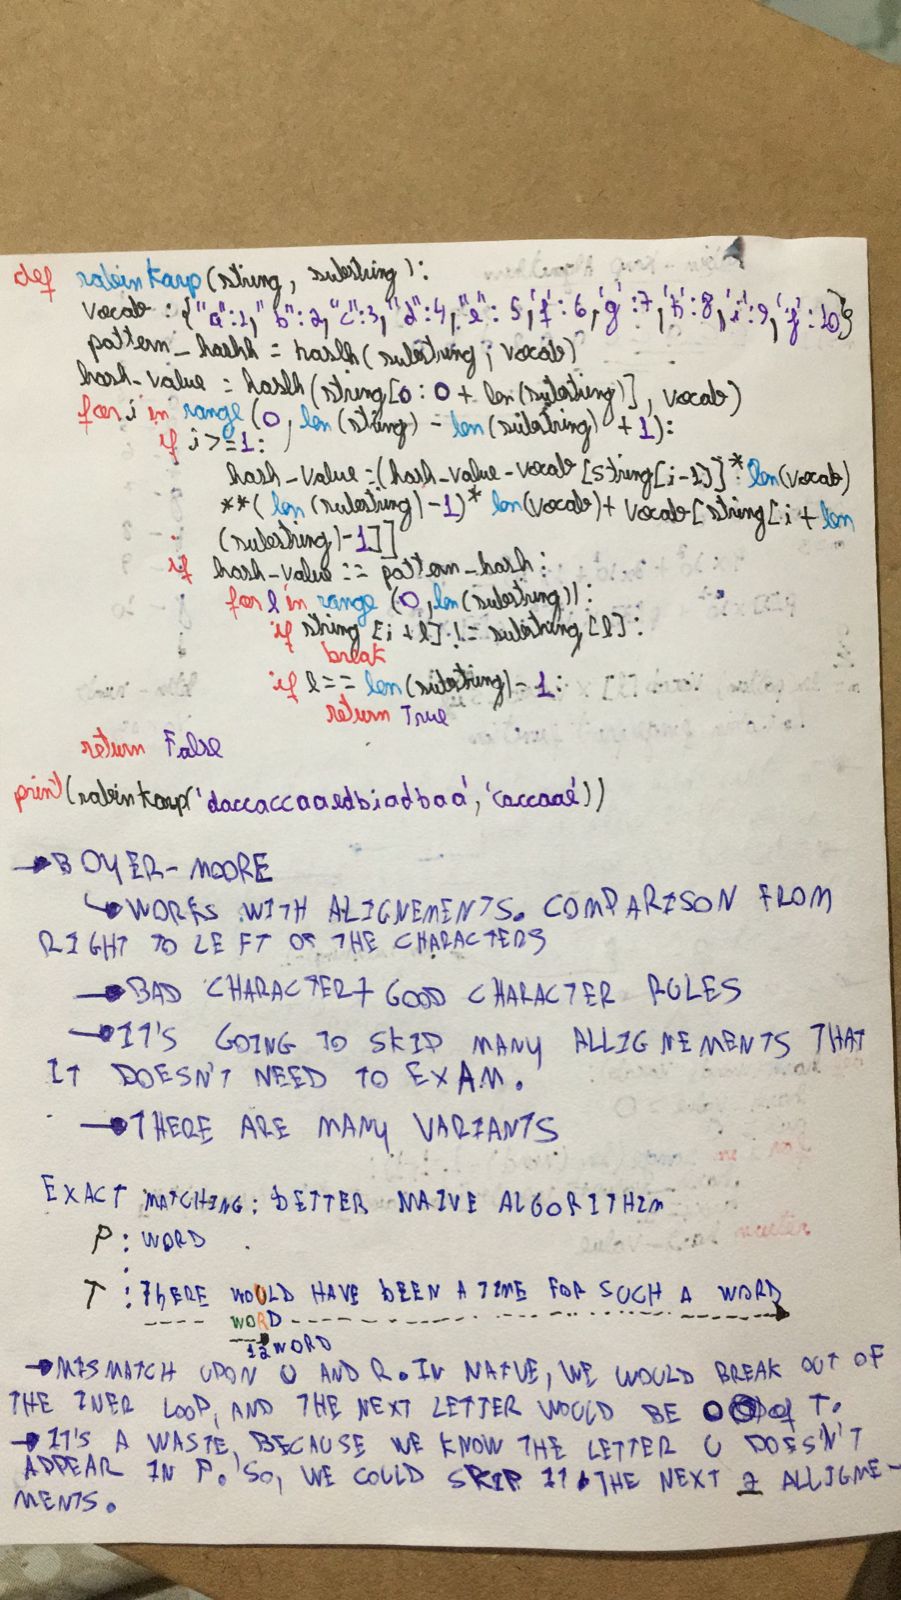 def rabinkarp(string, substring):
vocab : {"a":1,"b":2,"c":3,"d":4,"e": 5,'f':6,'g':7,'h':8,'i':9,'j':10}
pattern_hashh = haslh(substring, vocab)
hash-value = haslh(string[0:0+ len(substring)], vocab)
for i in range (0, len(string) - len(substring) + 1):
if i >= 1:
hash-value = (hash-value-vocab[string[i-1]]*len(vocab)
**(len(substring)-1)* len(vocab)+ vocab[string[i + len
(substring)-1]]
if hash-value == pattern-hash:
for l in range (0, len(substring)):
if string [i + l] != substring [l]:
break
if l == len(substring) - 1:
return True
return False
print(rabinkarp('daccaccaaedbiadbaa', 'caccaae'))
→ BOYER-MOORE
↳ WORKS WITH ALIGNEMENTS. COMPARISON FROM
RIGHT TO LEFT OF THE CHARACTERS
→ BAD CHARACTER + GOOD CHARACTER RULES
→ IT'S GOING TO SKIP MANY ALLIGNEMENTS THAT
IT DOESN'T NEED TO EXAM.
→ THERE ARE MANY VARIANTS
EXACT MATCHING: BETTER NAIVE ALGORITHIM
P: WORD
T: THERE WOULD HAVE BEEN A TIME FOR SUCH A WORD
WORD
12 WORD
→ MISMATCH UPON U AND R. IN NAIVE, WE WOULD BREAK OUT OF
THE INER LOOP, AND THE NEXT LETTER WOULD BE O of T.
→ IT'S A WASTE, BECAUSE WE KNOW THE LETTER U DOESN'T
APPEAR IN P. SO, WE COULD SKIP IT THE NEXT 2 ALLIGME-
MENTS.